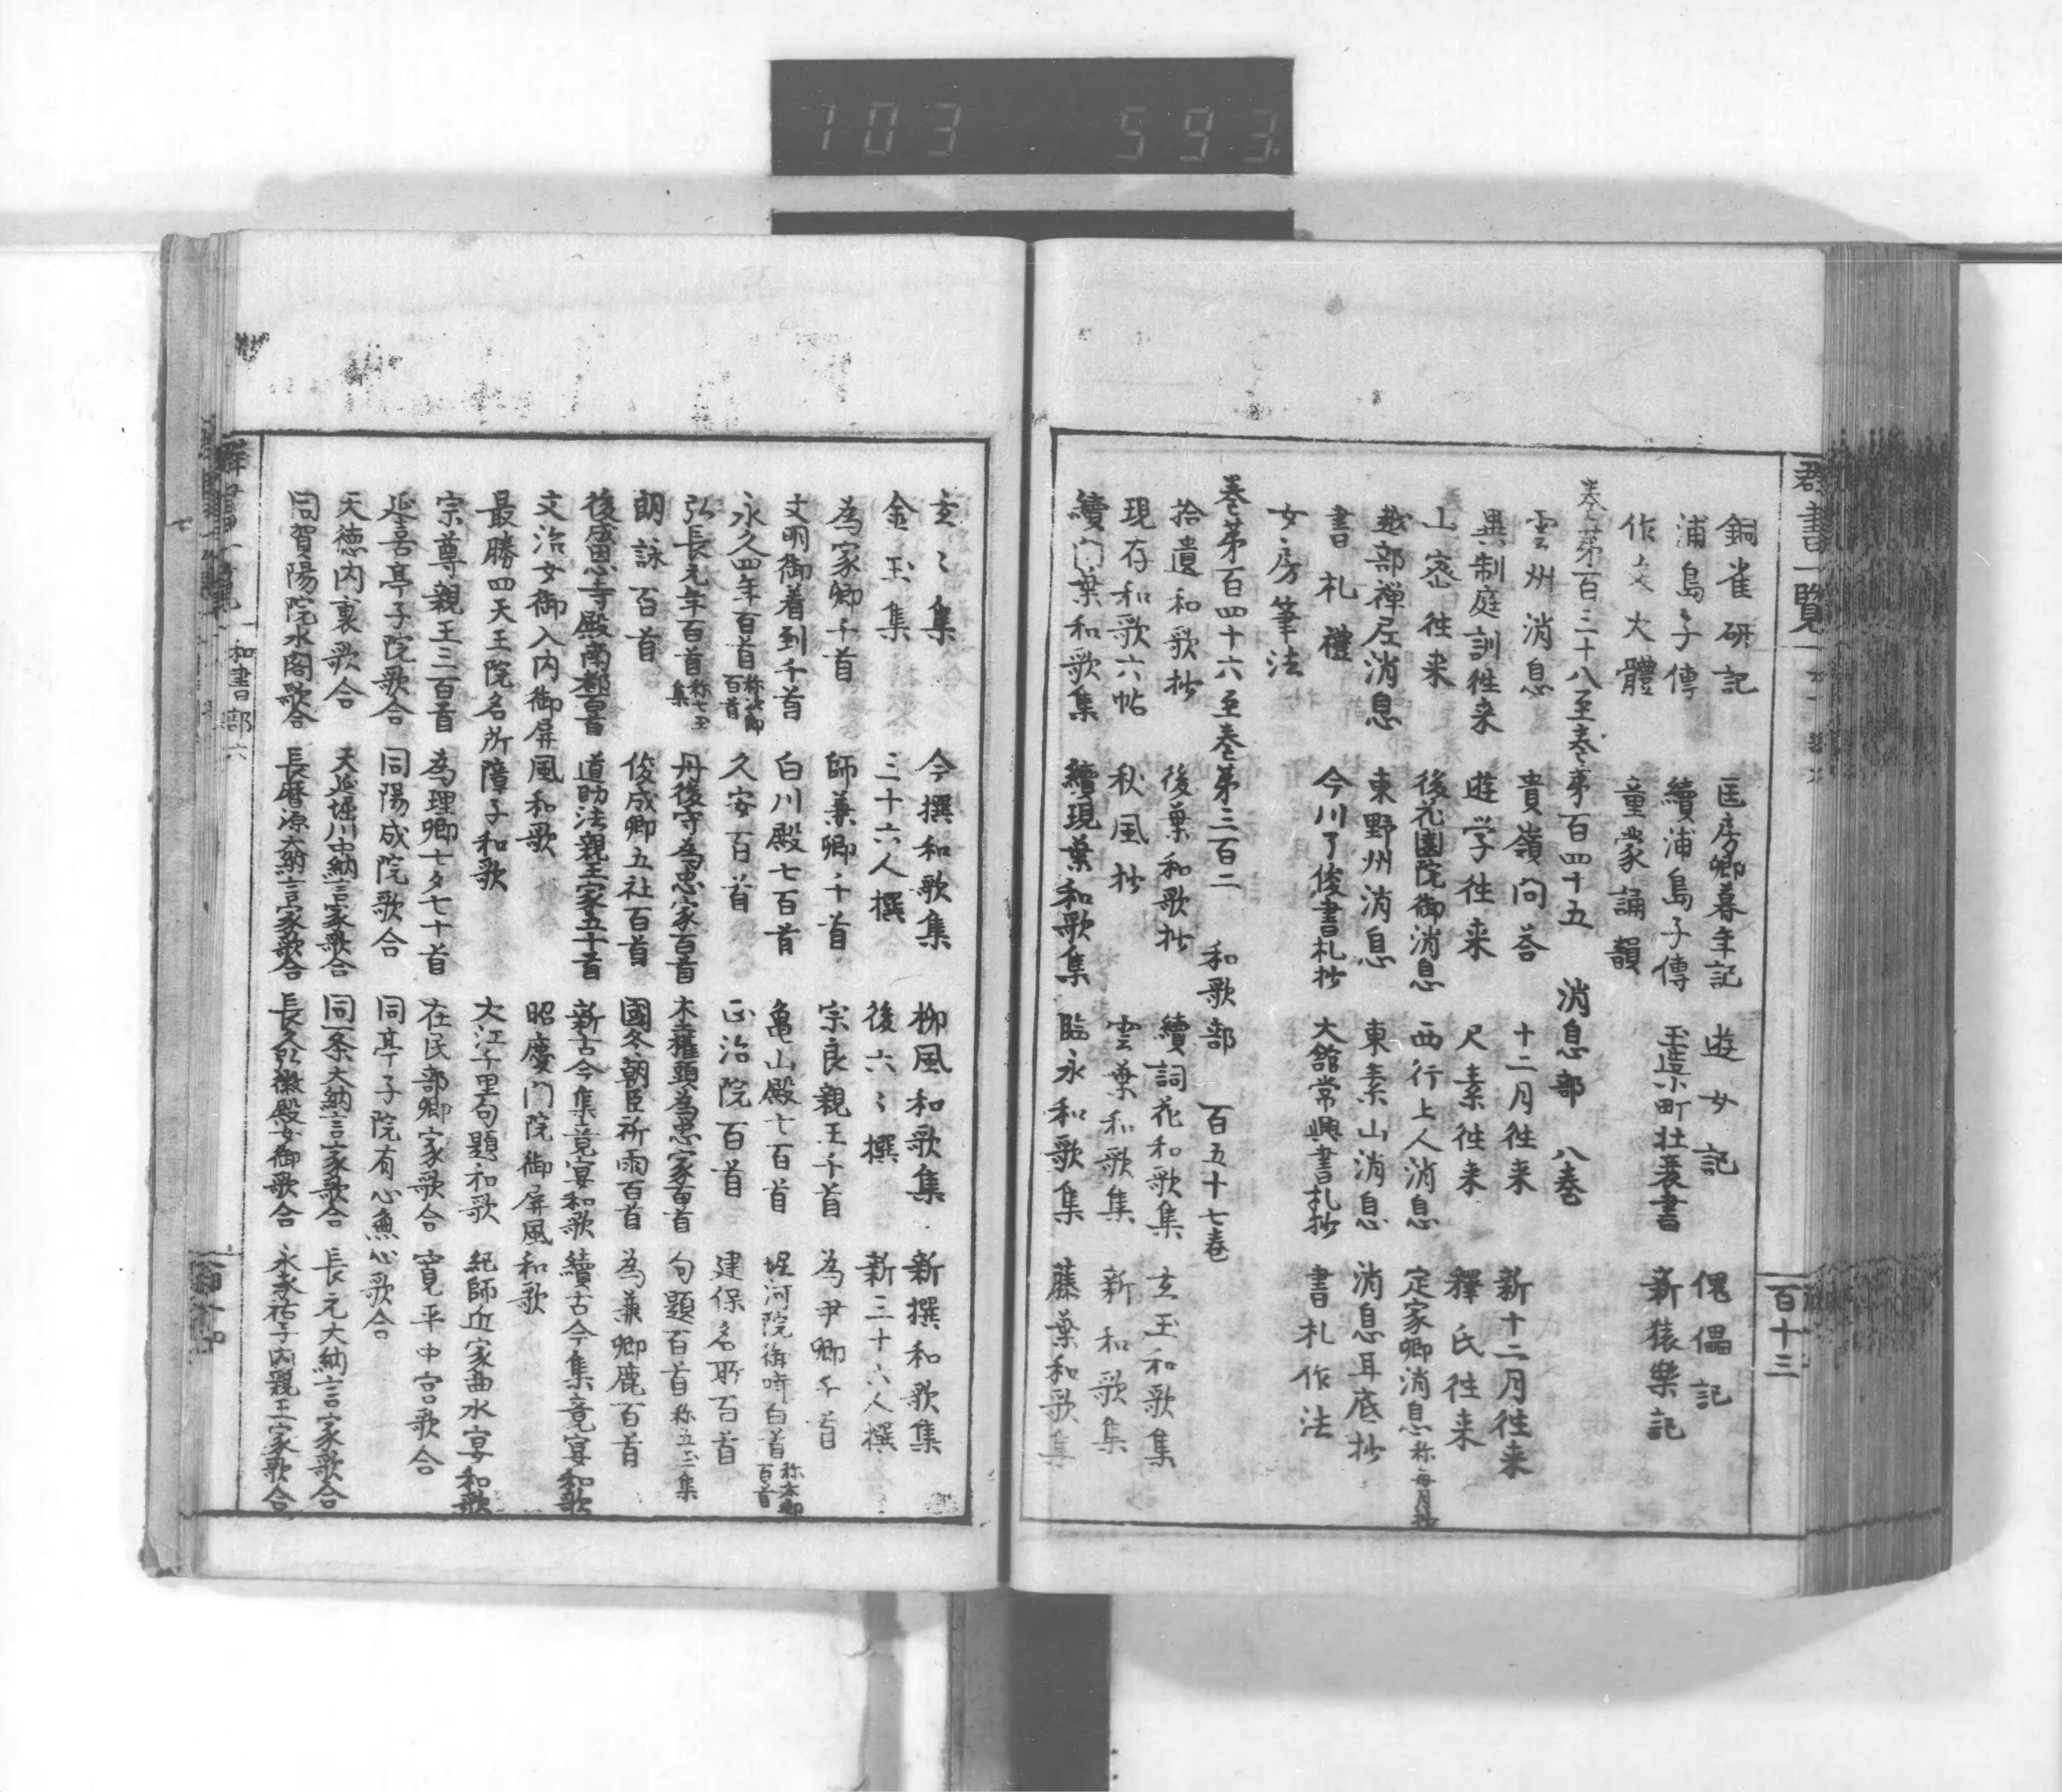 103 593
群書一覧
百十三
銅雀研記 匡房卿暮年記 遊女記 傀儡記
浦島子傳 續浦島子傳 玉造小町壮衰書 新猿樂記
作文大體 童蒙誦韻
巻第百三十八至巻第百四十五 消息部 八巻
雲州消息 貴嶺問荅 十二月徃来 新十二月徃来
異制庭訓徃来 遊学徃来 尺素徃来 釋氏徃来
山密徃来 後花園院御消息 西行上人消息 定家卿消息 称毎月抄
越部禅尼消息 東野州消息 東素山消息 消息耳底抄
書札禮 今川了俊書札抄 大舘常興書札抄 書札作法
女房筆法
巻第百四十六至巻第三百二 和歌部 百五十七巻
拾遺和歌抄 後葉和歌抄 續詞花和歌集 玄玉和歌集
現存和歌六帖 秋風抄 雲葉和歌集 新和歌集
續門葉和歌集 續現葉和歌集 臨永和歌集 藤葉和歌集
玄〻集 今撰和歌集 柳風和歌集 新撰和歌集
金玉集 三十六人撰 後六〻撰 新三十六人撰
為家卿千首 師兼卿千首 宗良親王千首 為尹卿千首
文明御着到千首 白川殿七百首 亀山殿七百首 堀河院御時百首 称太郎百首
永久四年百首 称次郎百首 久安百首 正治院百首 建保名所百首
弘長元年百首 称七玉集 丹後守為忠家百首 木工權頭為忠家百首 句題百首 称五玉集
朗詠百首 俊成卿五社百首 國冬朝臣祈雨百首 為兼卿鹿百首
後成恩寺殿南都百首 道助法親王家五十首 新古今集竟宴和歌 續古今集竟宴和歌
文治女御入内御屏風和歌 昭慶門院御屏風和歌
最勝四天王院名所障子和歌 大江千里句題和歌 紀師近家曲水宴和歌
宗尊親王三百首 為理卿七夕七十首 在民部卿家歌合 寛平中宮歌合
延喜亭子院歌合 同陽成院歌合 同亭子院有心無心歌合
天徳内裏歌合 天延堀川中納言家歌合 同一条大納言家歌合 長元大納言家歌合
同賀陽院水閣歌合 長暦源大納言家歌合 長久弘徽殿女御歌合 永承祐子内親王家歌合
群書一覧
和書部六